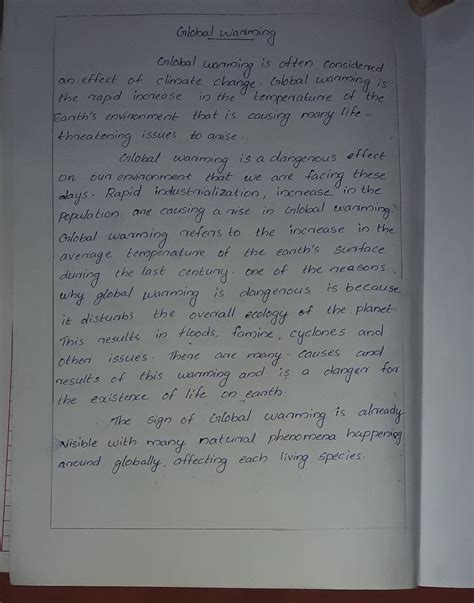 Global Warming
Global warming is often considered
an effect of climate change. Global warming is
the rapid increase in the temperature of the
Earth's environment that is causing many life-
threatening issues to arise.
Global warming is a dangerous effect
on our environment that we are facing these
days. Rapid industrialization, increase in the
Population are causing a rise in Global warming.
Global warming refers to the increase in the
average temperature of the earth's surface
during the last century. one of the reasons
why global warming is dangerous is because
it disturbs the overall ecology of the planet
This results in floods, famine, cyclones and
other issues. There are many causes and
results of this warming and is a danger for
the existence of life on earth.
The sign of Global warming is already
visible with many natural phenomena happening
around globally, affecting each living species.